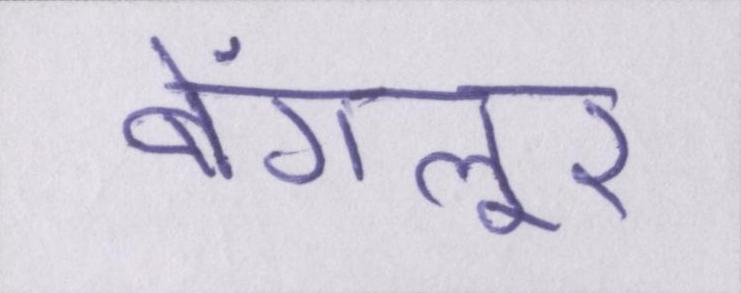 बेंगलूर